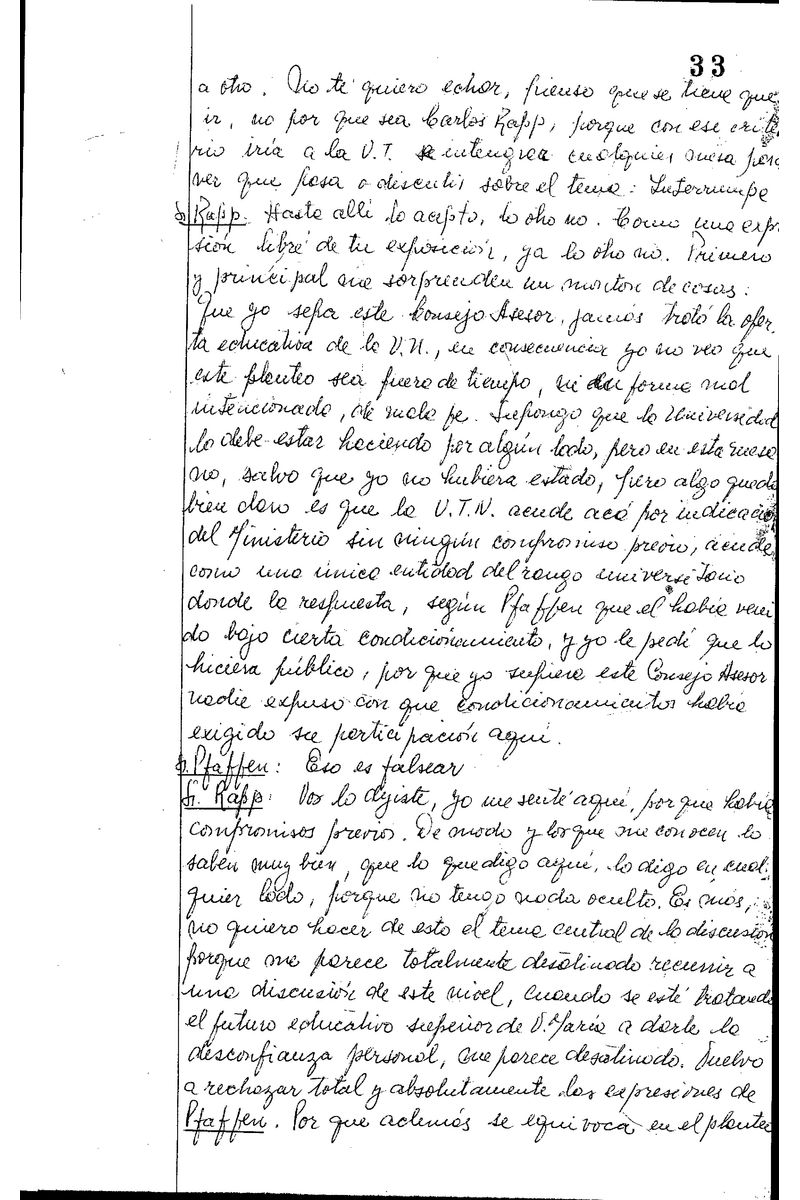 33
a otro. No te quiero echar, pienso que se tiene que
ir, no por que sea Carlos Rapp, porque con ese crite
rio iría a la U.T. se integrea cualquier mesa para
ver que pasa o discutir sobre el tema: Interrumpe
Sr. Rapp. Hasta allí lo acepto, lo otro no. Como una expre
sión libre de tu exposición, ya lo otro no. Primero
y principal me sorprenden un montón de cosas:
Que yo sepa este Consejo Asesor, jamás trató la ofer
ta educativa de la U.N., en consecuencia yo no veo que
este planteo sea fuera de tiempo, ni en forma mal
intencionada, de mala fe. Supongo que la Universidad
lo debe estar haciendo por algún lado, pero en esta mesa
no, salvo que yo no hubiera estado, pero algo queda
bien claro es que la U.T.N. acude acá por indicación
del Ministerio sin ningún compromiso previo, acude
como una única entidad del rango universitario
donde la respuesta, según Pfaffen que el había veni
do bajo cierta condicionamiento, y yo le pedí que lo
hiciera público, por que yo supiera este Consejo Asesor
nadie expuso con que condicionamientos había
exigido su participación aquí.
Sr. Pfaffen: Eso es falsear
Sr. Rapp: Vos lo dijiste, yo me senté aquí, por que había
compromisos previos. De modo y los que me conocen lo
saben muy bien, que lo que digo aquí, lo digo en cual
quier lado, porque no tengo nada oculto. Es más,
no quiero hacer de esto el tema central de la discusión
porque me parece totalmente desatinado recurrir a
una discusión de este nivel, cuando se esté tratando
el futuro educativo superior de V. María a darle la
desconfianza personal, me parece desatinado. Vuelvo
a rechazar total y absolutamente las expresiones de
Pfaffen. Por que además se equivoca en el planteo